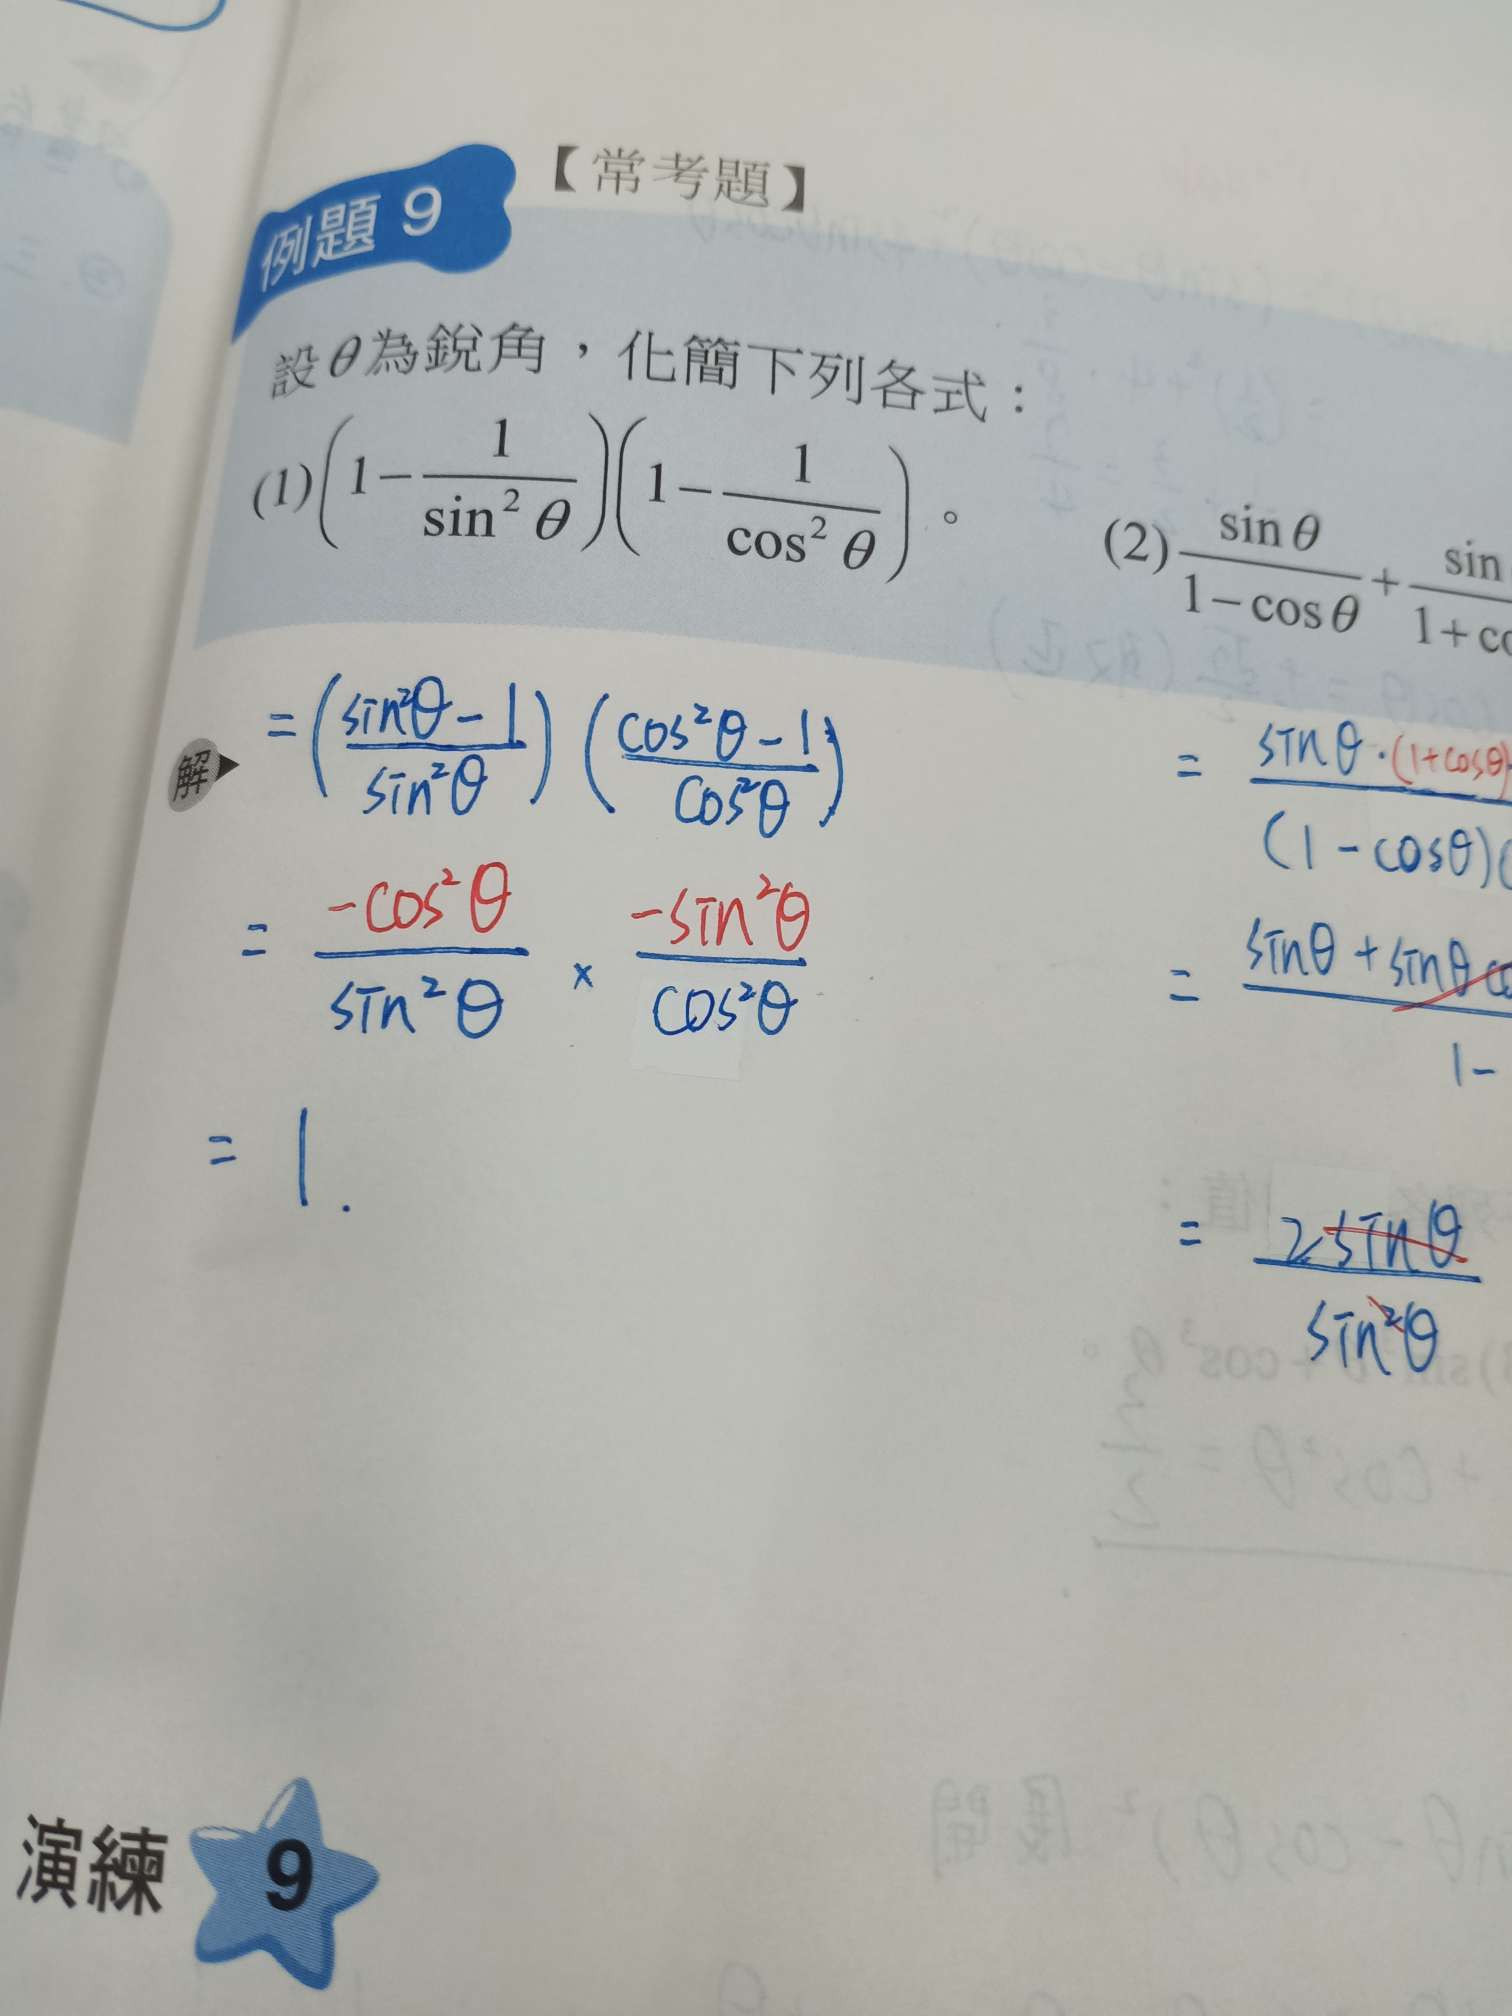 例題 9 【常考題】
設θ為銳角，化簡下列各式：
(1)(1−1/sin²θ)(1−1/cos²θ)。 (2)sinθ/(1−cosθ)+sin/(1+c
解
=(sin²θ−1/sin²θ)(cos²θ−1/cos²θ)
= −cos²θ/sin²θ × −sin²θ/cos²θ
= 1.
= sinθ·(1+cosθ)/(1−cosθ)(
= sinθ+sinθ co/1−
= 2sinθ/sin²θ
演練 9